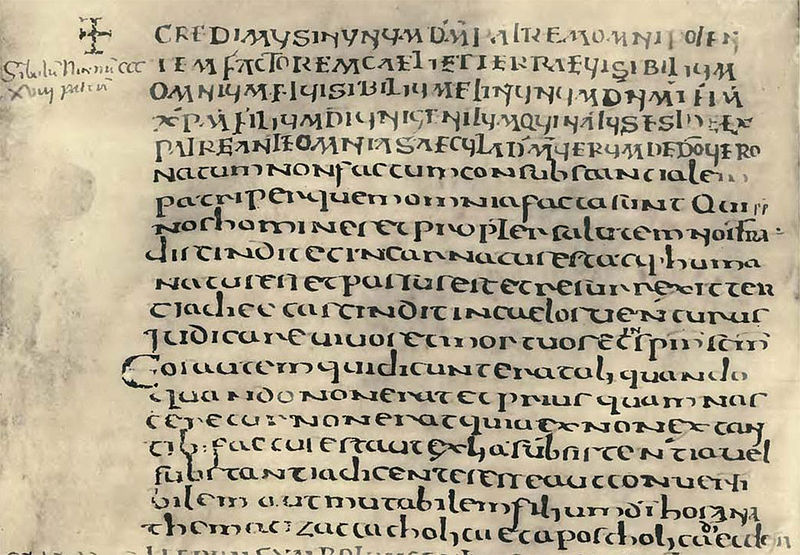 CREDIMUS IN UNUM DM PATREM OMNIPOTEN
TEM FACTOREM CAELI ET TERRAE UISIBILIUM
OMNIUM ET UISIBILIUM ET IN UNUM DNM IHM
XPM FILIUM DI UNIGENITUM QUI NATUS EST DE EX
PATRE ANTE OMNIA SAECULA DM UERUM DE DO UERO
natum non factum consubstancialem
patri per quem omnia facta sunt Qui pp
nos homines et propter salutem nostra
discindit et incarnatus est ac huma
natus est et passus est et resurrexit ter
cia die et ascindit in caelos uenturus
judicare uiuos et mortuos et in spm scm
Eos autem qui dicunt erat aliquando
quando non erat et prius quam nas
ceretur non erat quia ex non extan
tib; factui est aut ex ha subsistentia uel
substantia dicentes esse aut conuerti
bilem aut mutabilem filium di hos ana
thematizat catholica et apostholica